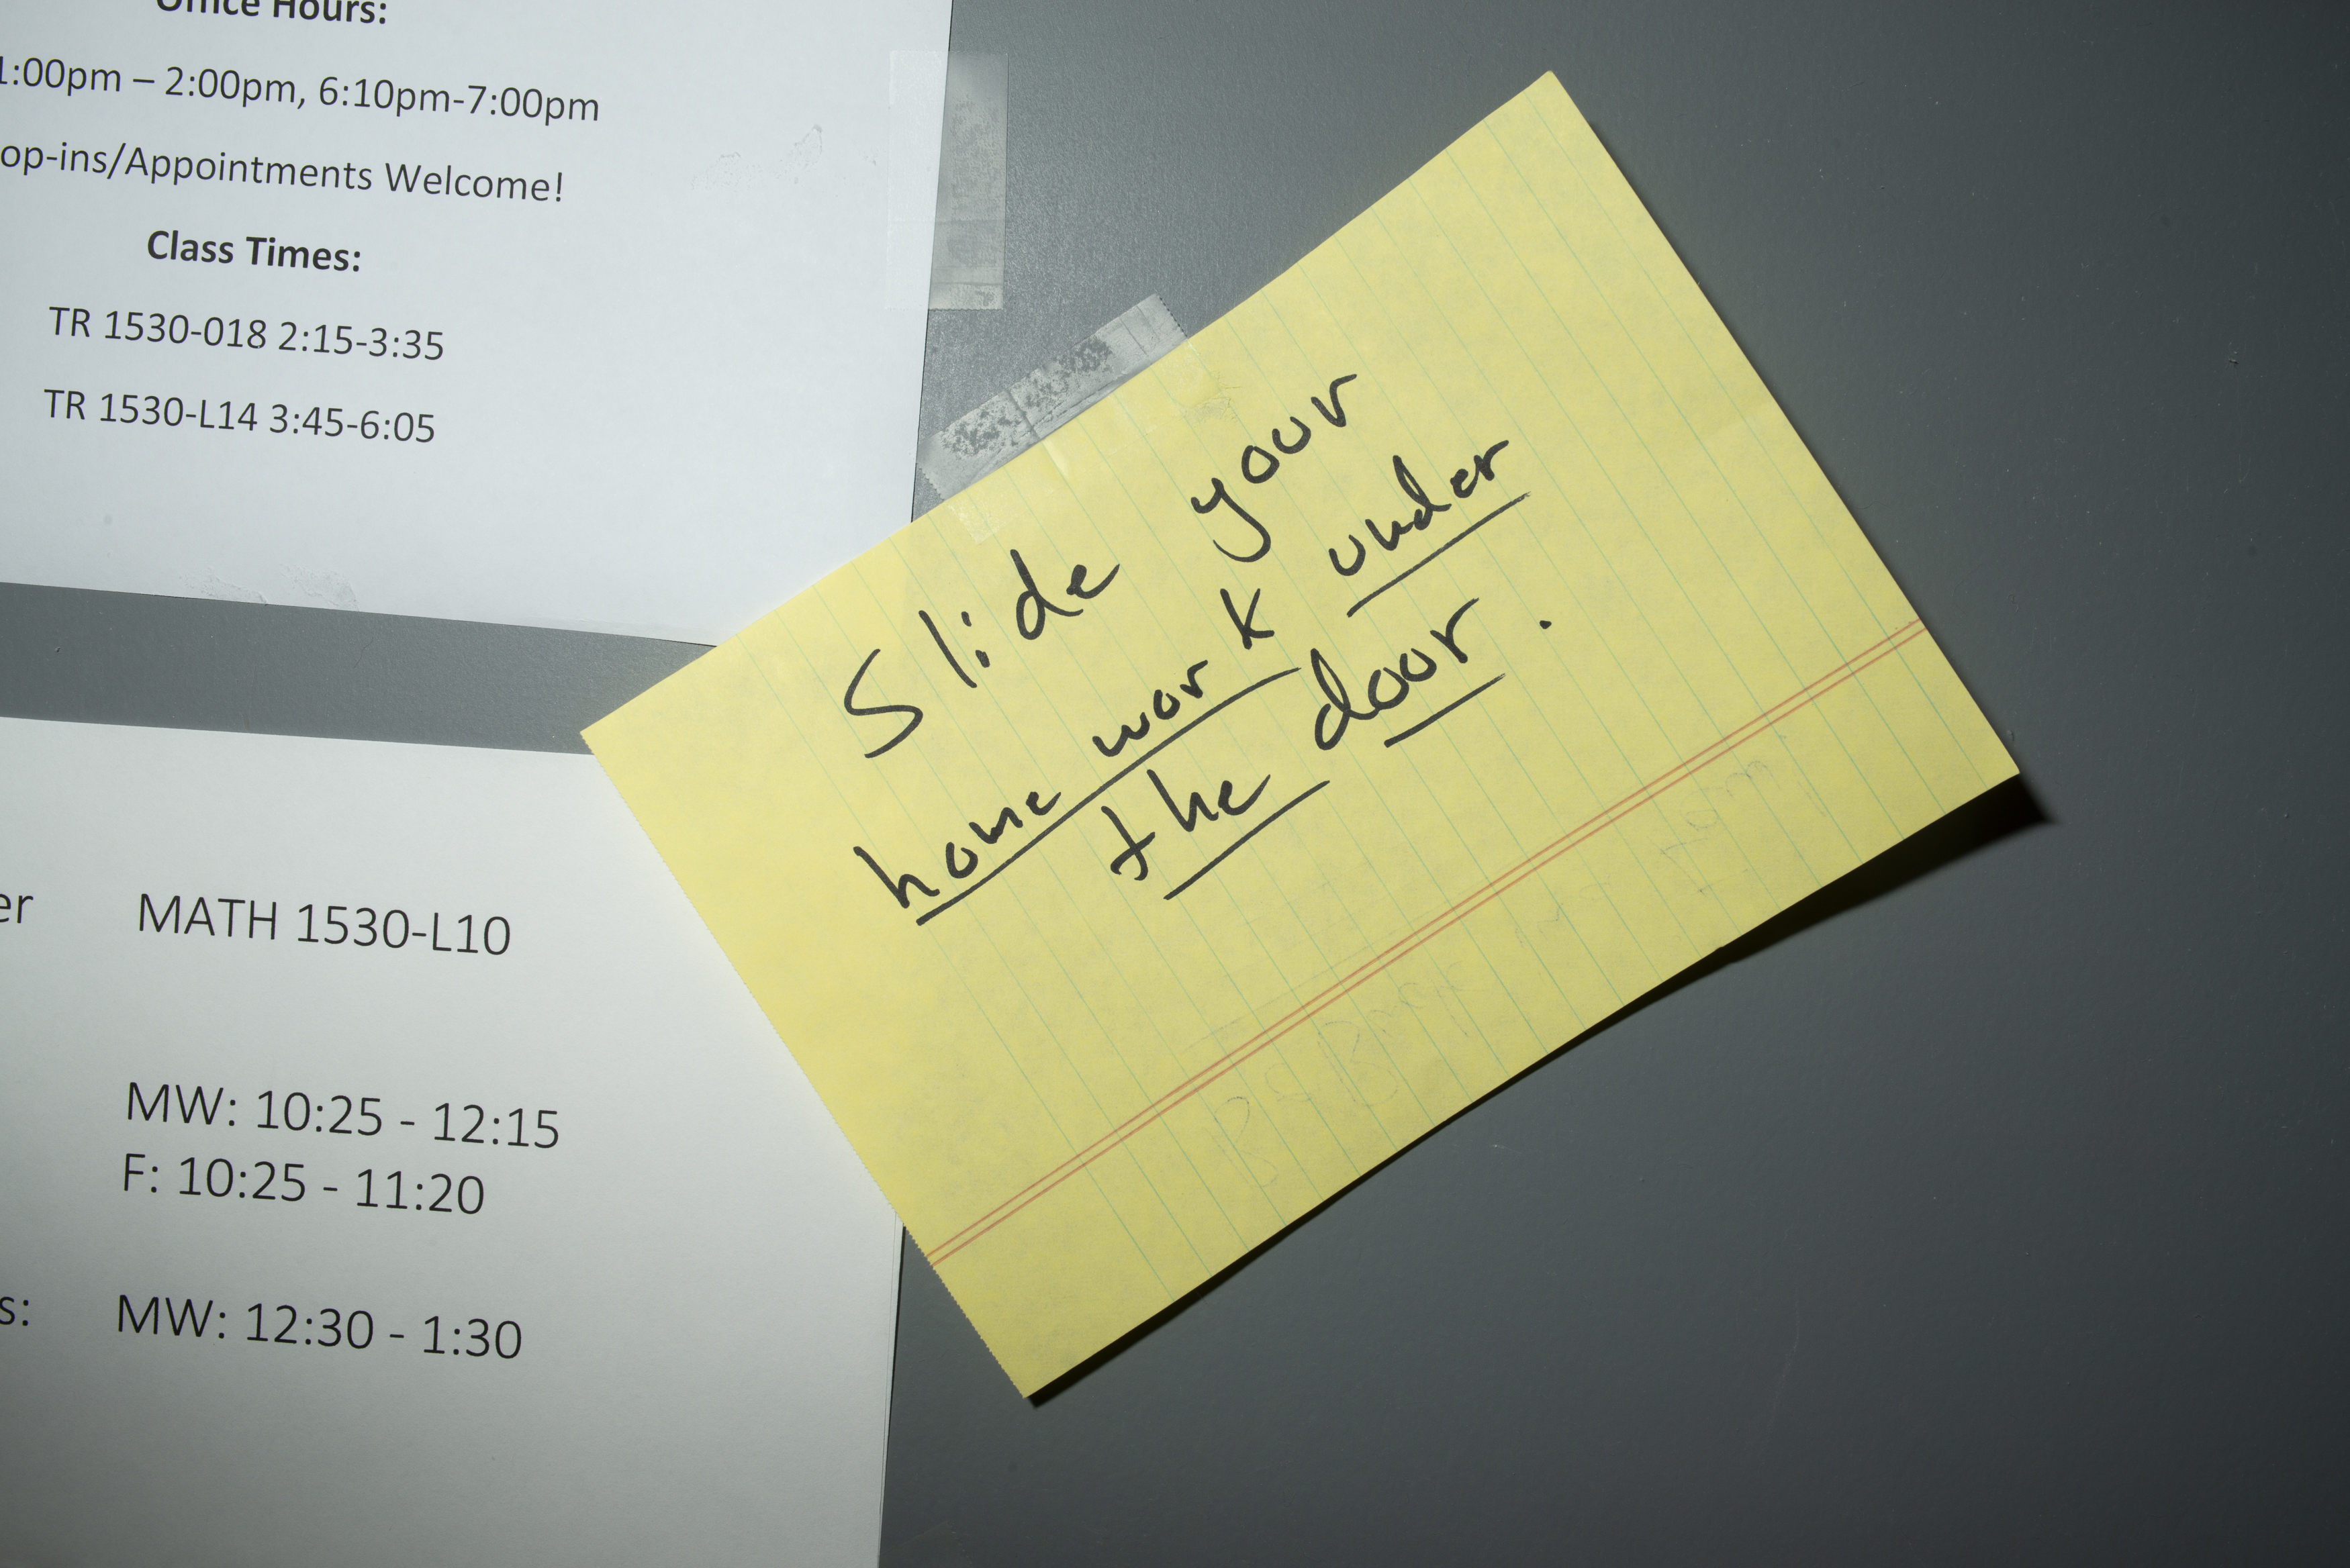 Office Hours:
1:00pm – 2:00pm, 6:10pm-7:00pm
op-ins/Appointments Welcome!
Class Times:
TR 1530-018 2:15-3:35
TR 1530-L14 3:45-6:05
er MATH 1530-L10
MW: 10:25 - 12:15
F: 10:25 - 11:20
s: MW: 12:30 - 1:30
Slide your
home work under
the door.